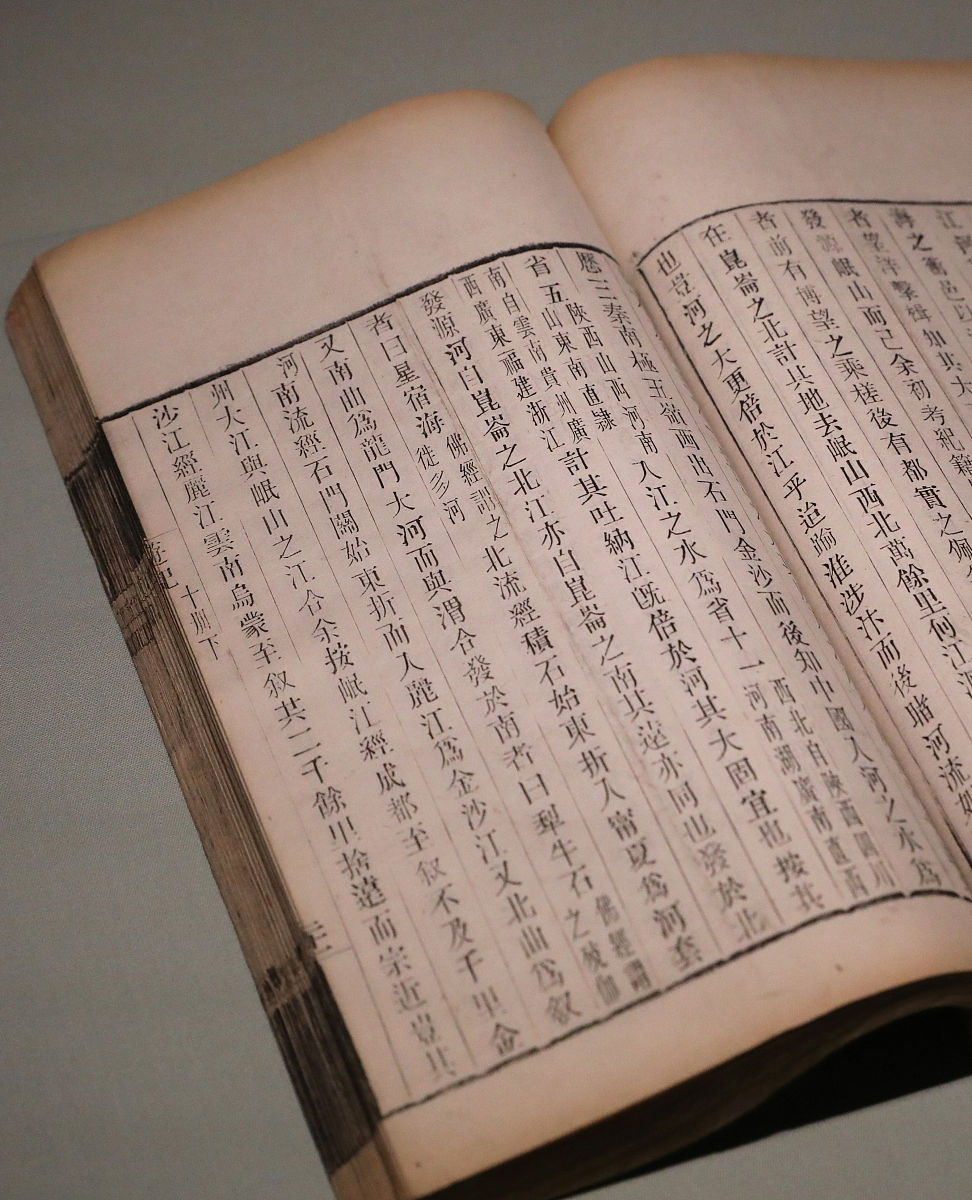 江
海之衝邑以
者望洋擊楫知其大
發源岷山而已余初考紀籍
者前有博望之乘槎後有都實之佩
在崑崙之北計其地去岷山西北萬餘里何江源
也豈河之大更倍於江乎迨踰淮涉汴而後睹河流如
歷三秦南極五嶺西出石門金沙而後知中國入河之水爲
省五陝西山西河南山東南直隸入江之水爲省十一西北自陝西四川河南湖廣南直西
南自雲南貴州廣西廣東福建浙江計其吐納江既倍於河其大固宜也按其
發源河自崑崙之北江亦自崑崙之南其遠亦同也發於北
者曰星宿海佛經謂之徙多河北流經積石始東折入甯夏爲河套
又南曲爲龍門大河而與渭合發於南者曰犁牛石佛經謂之殑伽
河南流經石門關始東折而入麗江爲金沙江又北曲爲敘
州大江與岷山之江合余按岷江經成都至叙不及千里金
沙江經麗江雲南烏蒙至叙共二千餘里捨遠而宗近豈其
遊記 十冊下